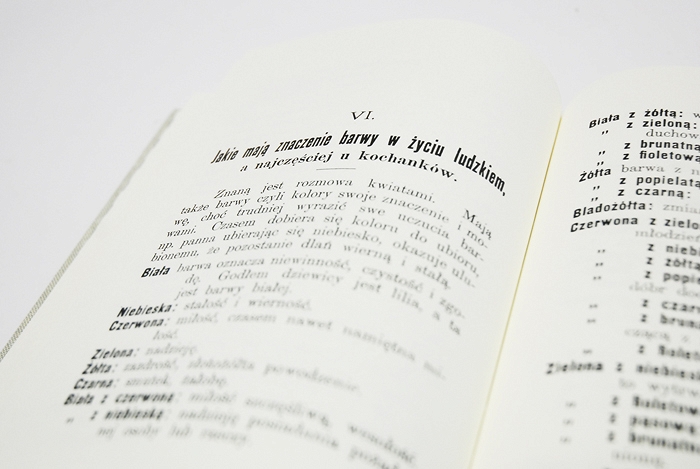 VI.
Jakie mają znaczenie barwy w życiu ludzkiem,
a najczęściej u kochanków.
Znaną jest rozmowa kwiatami. Mają
także barwy czyli kolory swoje znaczenie i mo-
wę, choć trudniej wyrazić swe uczucia bar-
wami. Czasem dobiera się koloru do ubioru,
np. panna ubierając się niebiesko, okazuje ulu-
bionemu, że pozostanie dlań wierną i stałą.
Biała barwa oznacza niewinność, czystość i zgo-
dę. Godłem dziewicy jest lilia, a ta
jest barwy białej.
Niebieska: stałość i wierność.
Czerwona: miłość, czasem nawet namiętna mi-
łość.
Zielona: nadzieję.
Żółta: zazdrość, złotożółta powodzenie.
Czarna: smutek, żałobę.
Biała z czerwoną: miłość szczęśliwą,
„ z niebieską: nadzieję
nej osoby lub
Biała z żółtą:
„ z zieloną:
duchow
„ z brunatną
„ z fioletową
Żółta barwa z n
„ z popielatą
„ z czarną:
Bladożółta: zmi
Czerwona z zielo
młodzie
„ z niebi
„ z żółtą
„ z popi
dóbr do
„ z czar
„ z brun
„
Zielona z niebiesk
„
„
„ z brunatn